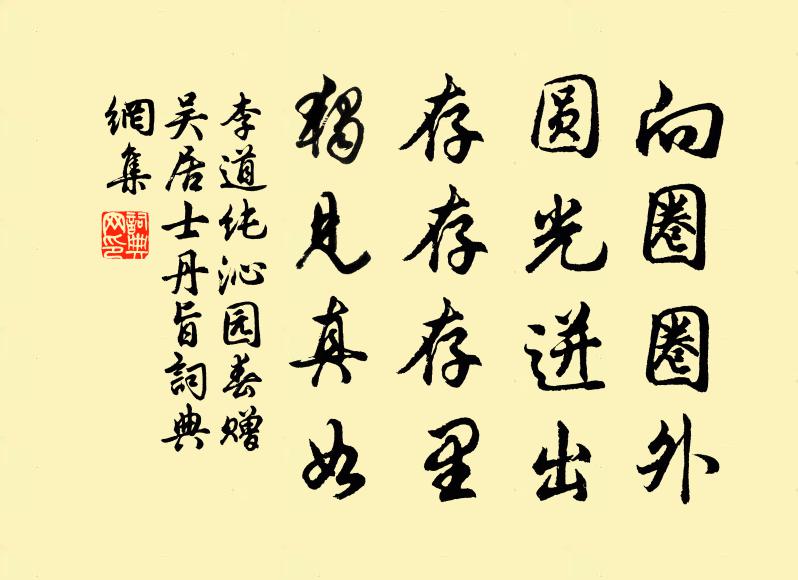 向圈圈外
圆光迸出
存存存里
独见真如
李道纯沁园春赠
吴居士丹旨詞典
網集
詞典
网印